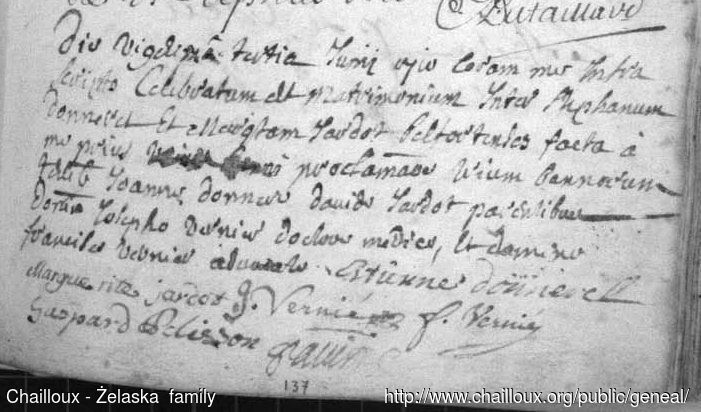 Dutaillave
Die vigesima tertia Junij 1710 coram me infra
scripto Celebratum est Matrimonium Inter Stephanum
Donnevet Et Margtam Jardot peltortenses facta á
me prius proclamaoe trium bannorum
testib Joanne donneve davide Jardot parentibus
Domino Josepho Vernie doctore medico, Et domino
francisco Vernie advocato Estienne donneve
Margueritte jardot J. Vernié f. Vernié
Gaspard Pelisson
137
Chailloux - Żelaska family
http://www.chailloux.org/public/geneal/